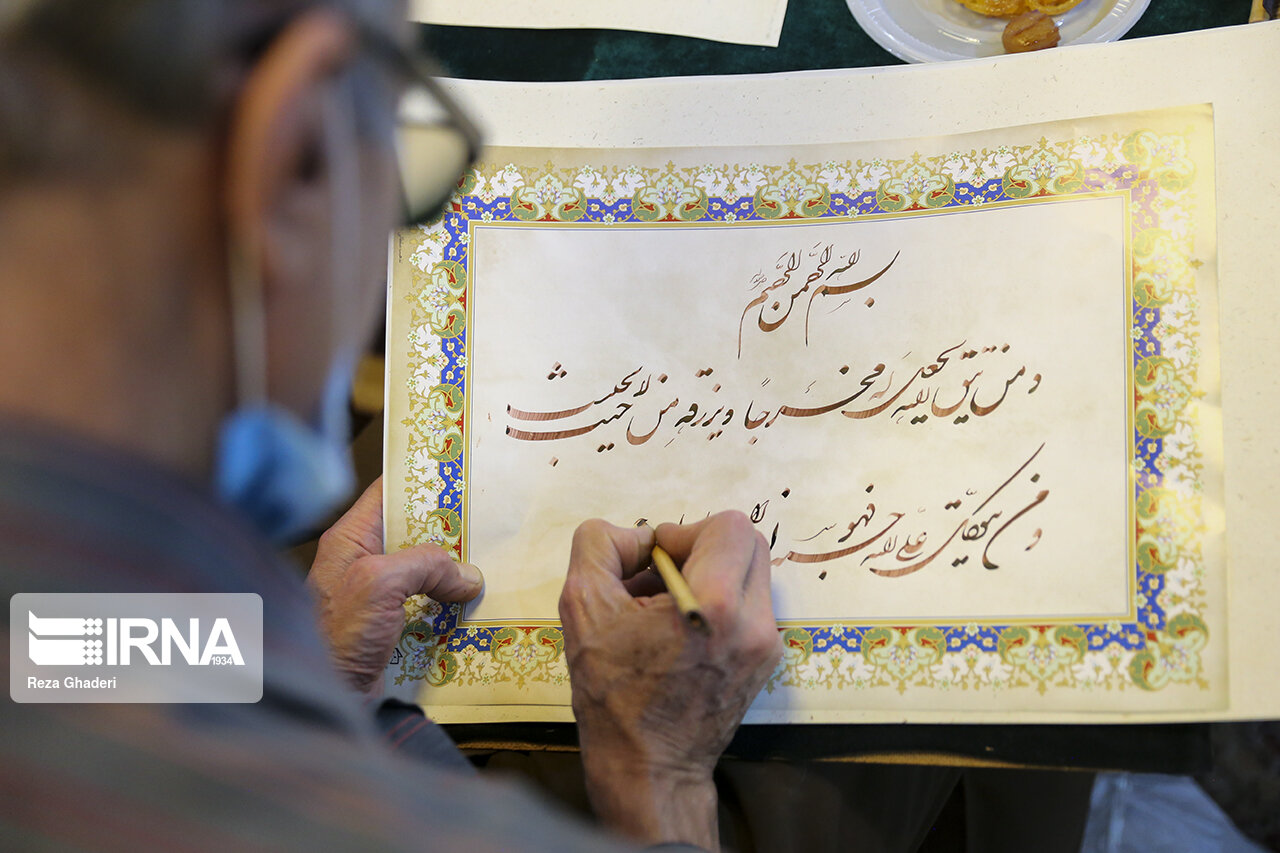 بسم الله الرحمن الرحیم
و من یتق الله یجعل له مخرجا و یرزقه من حیث لا یحتسب
و من یتوکل علی الله فهو حسبه
IRNA
1934
Reza Ghaderi